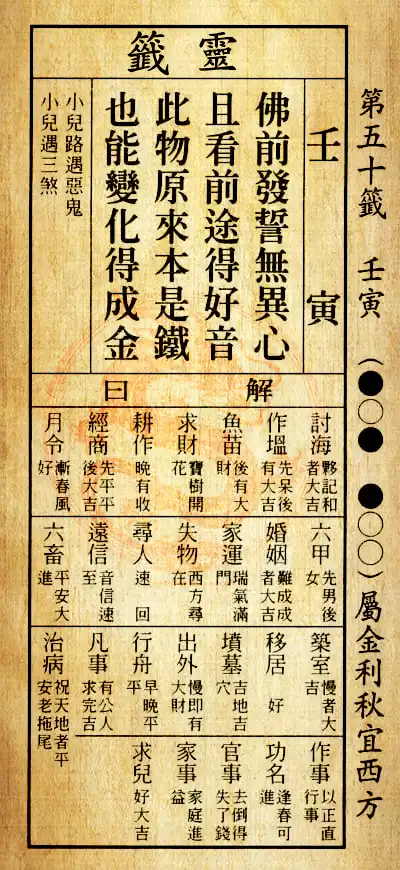 第五十籤　壬寅　（●○●　●○○）屬金利秋宜西方
靈籤
壬寅
佛前發誓無異心
且看前途得好音
此物原來本是鐵
也能變化得成金
小兒路遇惡鬼
小兒遇三煞
解曰
討海　夥記和者大吉
作塭　先呆後有大吉
魚苗　後有大財
求財　寶樹開花
耕作　晚有收
經商　先平平後大吉
月令　漸春風好
六甲　先男後女
婚姻　難成成者大吉
家運　瑞氣滿門
失物　西方尋在
尋人　速回
遠信　音信速至
六畜　平安大進
築室　慢者大吉
移居　好
墳墓　吉地吉穴
出外　慢即有大財
行舟　早晚平平
凡事　有公人求完吉
治病　祝天地者平安老拖尾
作事　以正直行事
功名　逢春可進
官事　去倒得失了錢
家事　家庭進益
求兒　好大吉